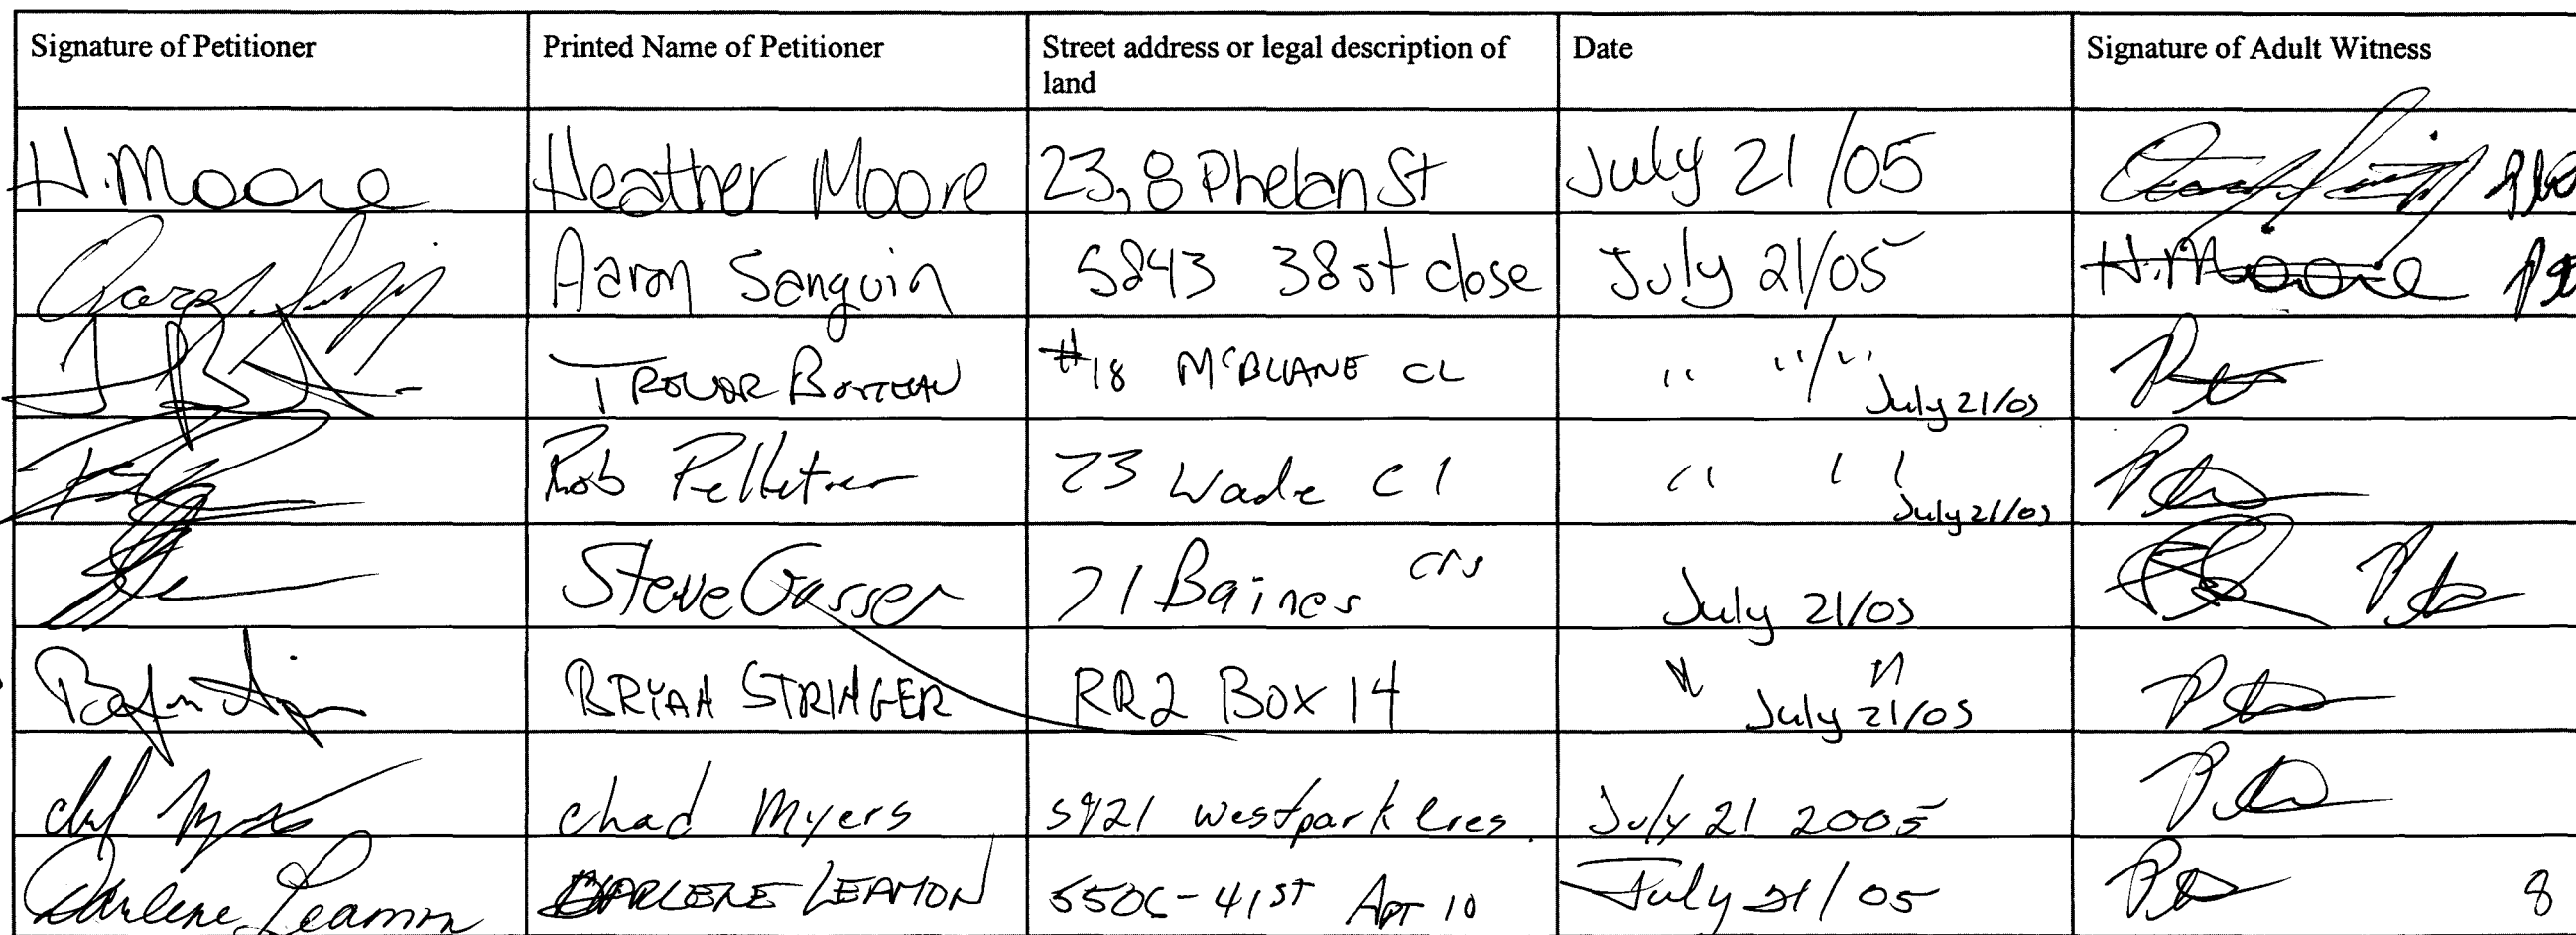 Signature of Petitioner Printed Name of Petitioner Street address or legal description of Date Signature of Adult Witness
land
H. Moore Heather Moore 23, 8 Phelan St July 21/05
Aaron Sanguin 5843 38 st close July 21/05 H. Moore
#18 CL " "/"
July 21/05
Rob Pelletier 23 Wade Cl " " July 21/05
Steve Gasser 71 Baines Crs July 21/05
BRIAN STRINGER RR2 BOX 14 " " July 21/05
Chad Myers 5921 westpark Cres. July 21 2005
Darlene Leamon DARLENE LEAMON 5506-41ST APT 10 July 21/05 8